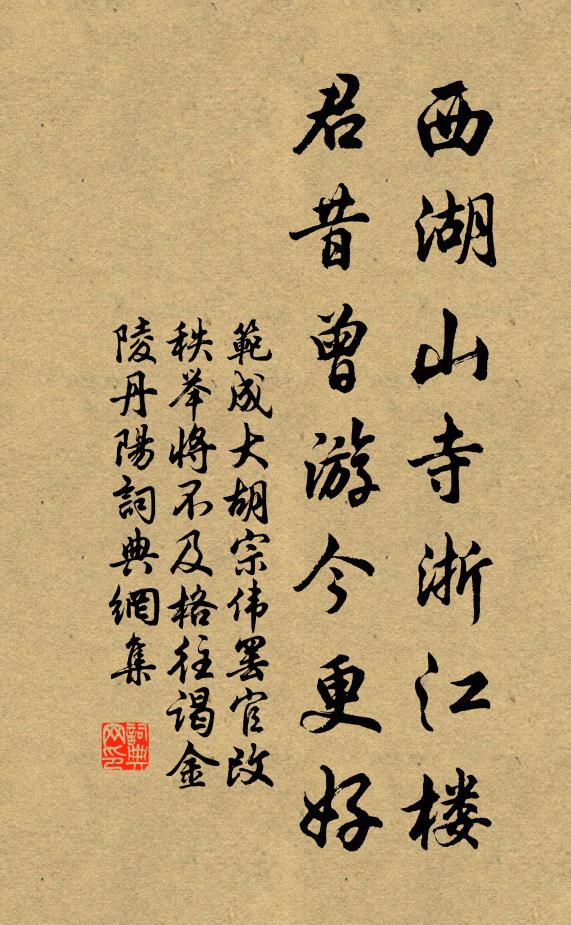 西湖山寺浙江楼
君昔曾游今更好
範成大胡宗伟罢官改
秩举将不及格往谒金
陵丹陽詞典網集
詞典
网印